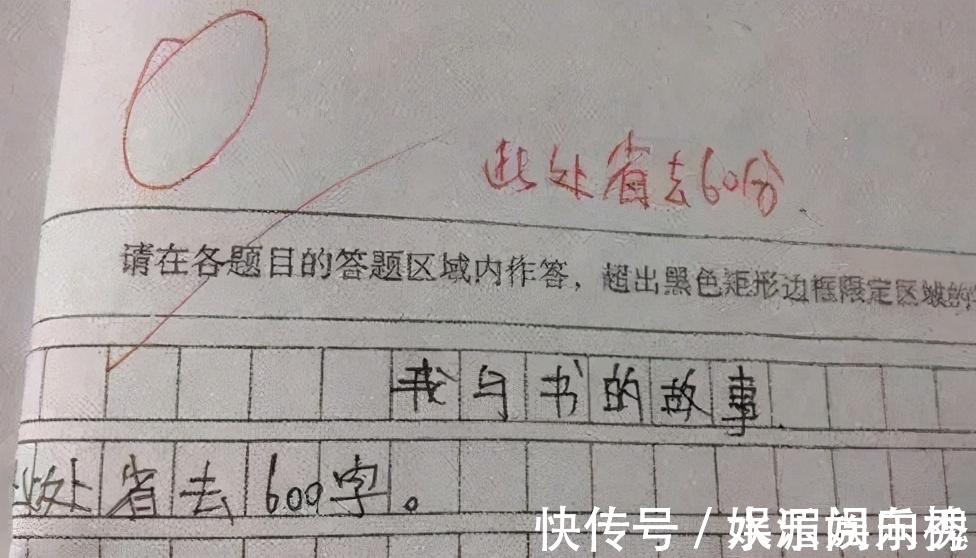 此处省去60分
请在各题目的答题区域内作答，超出黑色矩形边框限定区域的
我与书的故事
此处省去600字。
快传号／